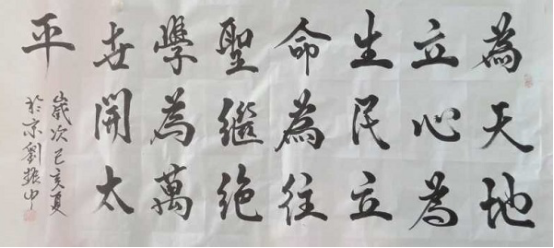 為天地
立心為
生民立
命為往
聖繼絕
學為萬
世開太
平
歲次己亥夏
於京劉振中